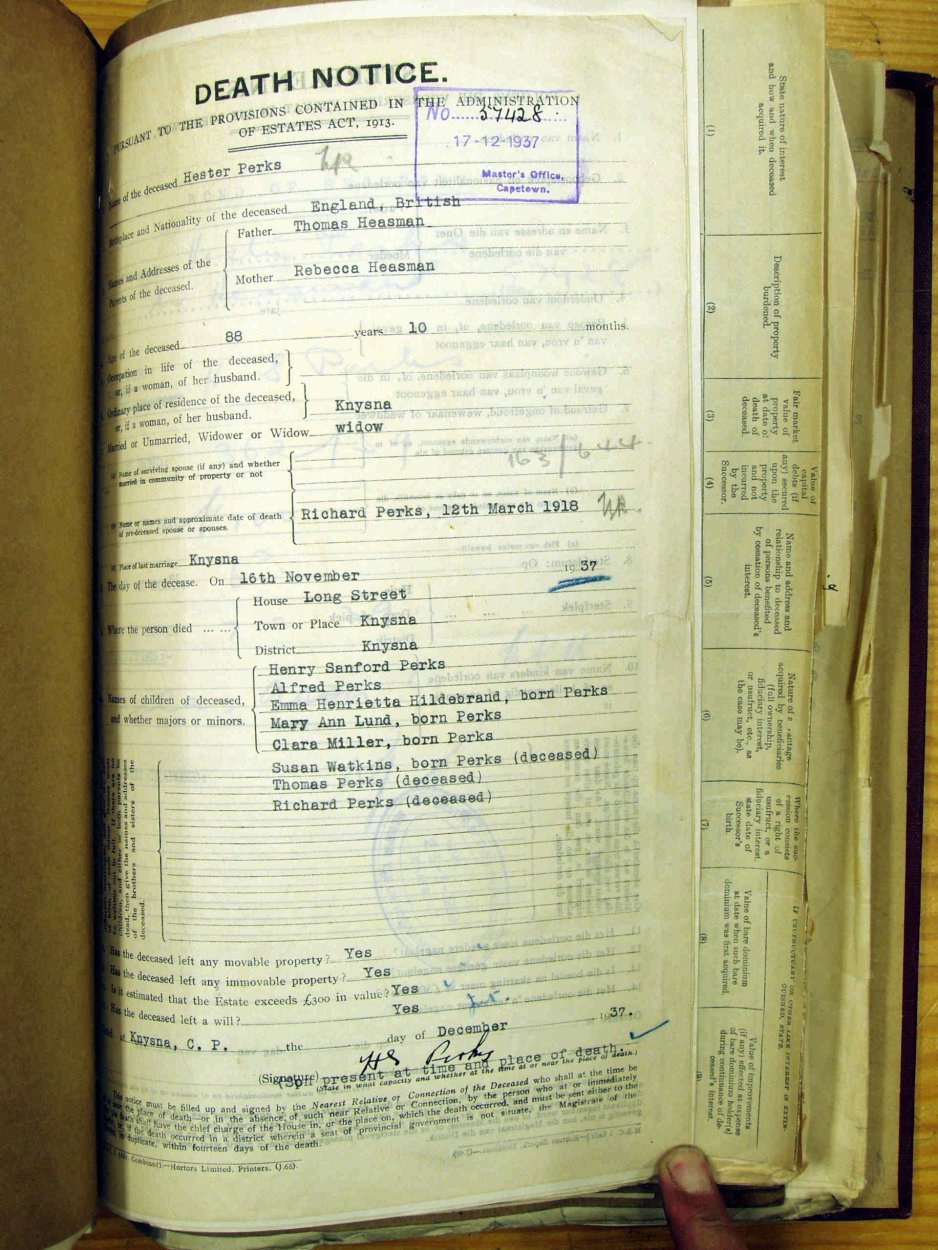 DEATH NOTICE.
PURSUANT TO THE PROVISIONS CONTAINED IN THE ADMINISTRATION
OF ESTATES ACT, 1913.
No. 57428
17-12-1937
Master's Office,
Capetown.
Name of the deceased Hester Perks
Birthplace and Nationality of the deceased England, British
Names and Addresses of the
Parents of the deceased.
Father Thomas Heasman
Mother Rebecca Heasman
Age of the deceased 88 years 10 months.
Occupation in life of the deceased,
or, if a woman, of her husband.
Ordinary place of residence of the deceased,
or, if a woman, of her husband.
Knysna
Married or Unmarried, Widower or Widow widow
Name of surviving spouse (if any) and whether
married in community of property or not
Name or names and approximate date of death
of pre-deceased spouse or spouses.
Richard Perks, 12th March 1918
Place of last marriage Knysna
The day of the decease. On 16th November 1937
Where the person died ... ...
House Long Street
Town or Place Knysna
District Knysna
Names of children of deceased,
and whether majors or minors.
Henry Sanford Perks
Alfred Perks
Emma Henrietta Hildebrand, born Perks
Mary Ann Lund, born Perks
Clara Miller, born Perks
Susan Watkins, born Perks (deceased)
Thomas Perks (deceased)
Richard Perks (deceased)
dead, then give the names and addresses
of the brothers and sisters of the
deceased.
Has the deceased left any movable property? Yes
Has the deceased left any immovable property? Yes
Is it estimated that the Estate exceeds £300 in value? Yes
Has the deceased left a will? Yes
Dated at Knysna, C. P. the day of December 1937.
(Signature) HS Perks
Son present at time and place of death.
(State in what capacity and whether at time at or near the place of death.)
This notice must be filled up and signed by the Nearest Relative or Connection of the Deceased who shall at the time be
place of death—or in the absence of such near Relative or Connection, by the person who at or immediately
have the chief charge of the House in, or the place on, which the death occurred, and must be sent either to the
death occurred in a district wherein a seat of provincial government is not situate, the Magistrate of the
in duplicate, within fourteen days of the death.
Combined).—Hortors Limited, Printers. (J.68).
State nature of interest
and how and when deceased
acquired it.
(1)
Description of property
burdened.
(2)
Fair market
value of
property
at date of
death of
deceased.
(3)
Value of
capital
debts (if
any) secured
upon the
property
and not
incurred
by the
Successor.
(4)
Name and address and
relationship to deceased
of persons benefited
by cessation of deceased's
interest.
(5)
acquired by beneficiaries
(full ownership,
fiduciary interest,
or usufruct, etc., as
the case may be).
(6)
Where the suc-
cession consists
of a right of
usufruct, or a
fiduciary interest,
state date of
Successor's
birth.
(7)
Value of bare dominium
at date when such bare
dominium was first acquired.
(8)
Value of improvements
(if any) effected at expense
of bare dominium holder(s)
during continuance of de-
ceased's interest.